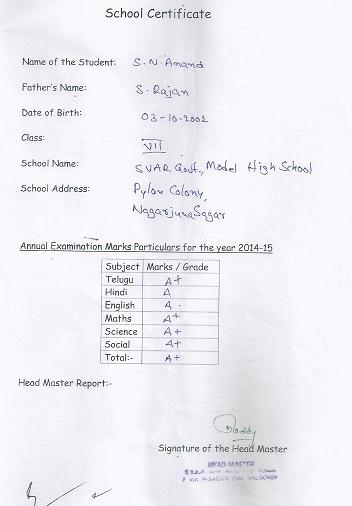 School Certificate
Name of the Student: S.N. Anand
Father's Name: S. Rajan
Date of Birth: 03-10-2002
Class: VII
School Name: SVAR Govt., Model High School
School Address: Pylon Colony,
NagarjunaSagar
Annual Examination Marks Particulars for the year 2014-15
Subject Marks / Grade
Telugu A+
Hindi A
English A
Maths A+
Science A+
Social A+
Total:- A+
Head Master Report:-
Signature of the Head Master
HEAD MASTER